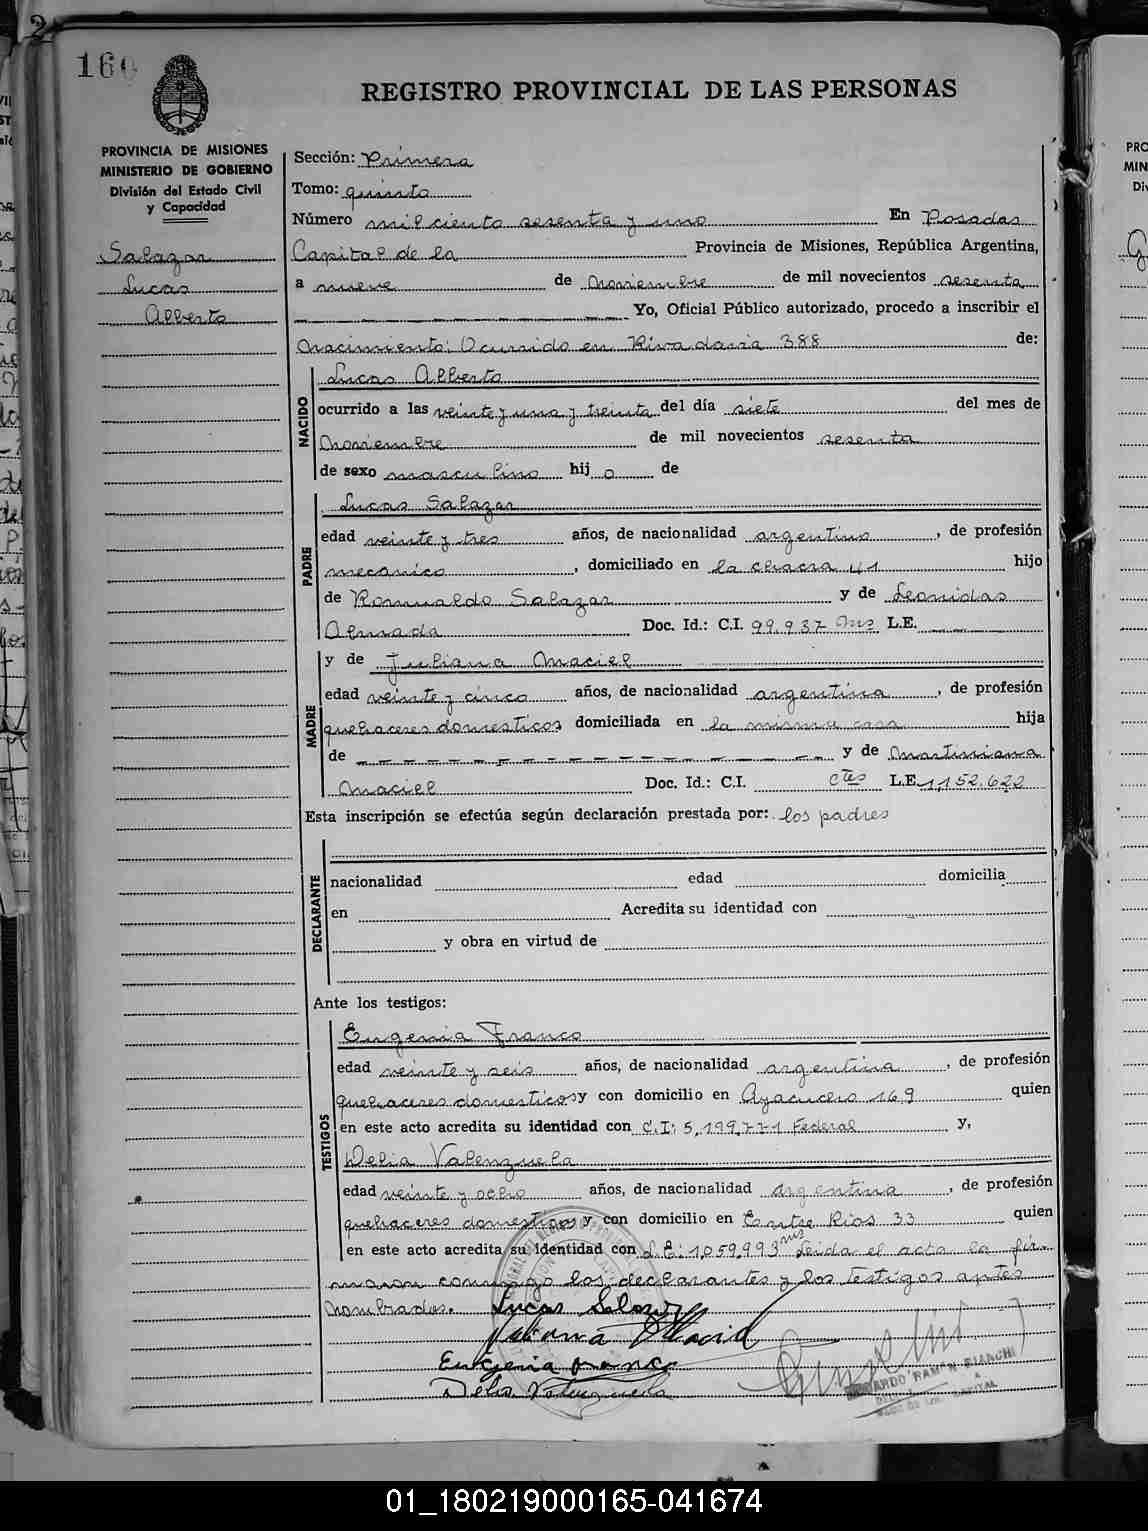 160
REGISTRO PROVINCIAL DE LAS PERSONAS
PROVINCIA DE MISIONES
MINISTERIO DE GOBIERNO
División del Estado Civil
y Capacidad
Salazar
Lucas
Alberto
Sección: Primera
Tomo: quinto
Número mil ciento sesenta y uno En Posadas
Capital de la Provincia de Misiones, República Argentina,
a nueve de Noviembre de mil novecientos sesenta
Yo, Oficial Público autorizado, procedo a inscribir el
Nacimiento: Ocurrido en Rivadavia 388 de:
NACIDO
Lucas Alberto
ocurrido a las veinte y una y treinta del día siete del mes de
Noviembre de mil novecientos sesenta
de sexo masculino hij o de
PADRE
Lucas Salazar
edad veinte y tres años, de nacionalidad argentino, de profesión
mecánico, domiciliado en la chacra 41 hijo
de Romualdo Salazar y de Leonidas
Almada Doc. Id.: C.I. 99.937 Mns L.E.
MADRE
y de Juliana Maciel
edad veinte y cinco años, de nacionalidad argentina, de profesión
quehaceres domesticos domiciliada en la misma casa hija
de y de Martiniana
Maciel Doc. Id.: C.I. Ctes L.E. 1,152.622
Esta inscripción se efectúa según declaración prestada por: los padres
DECLARANTE
nacionalidad edad domicilia
en Acredita su identidad con
y obra en virtud de
Ante los testigos:
TESTIGOS
Eugenia Franco
edad veinte y seis años, de nacionalidad argentina, de profesión
quehaceres domesticos y con domicilio en Ayacucho 169 quien
en este acto acredita su identidad con C.I: 5,199,771 Federal y,
Delia Valenzuela
edad veinte y ocho años, de nacionalidad argentina, de profesión
quehaceres domesticos y con domicilio en Entre Rios 33 quien
en este acto acredita su identidad con L.E: 1,059,993 Mns Leida el acta la fir-
maron conmigo los declarantes y los testigos antes
nombrados.
Lucas Salazar
Juliana Maciel
Eugenia Franco
Delia Valenzuela
RAMON BIANCHI
CAPITAL
01_180219000165-041674